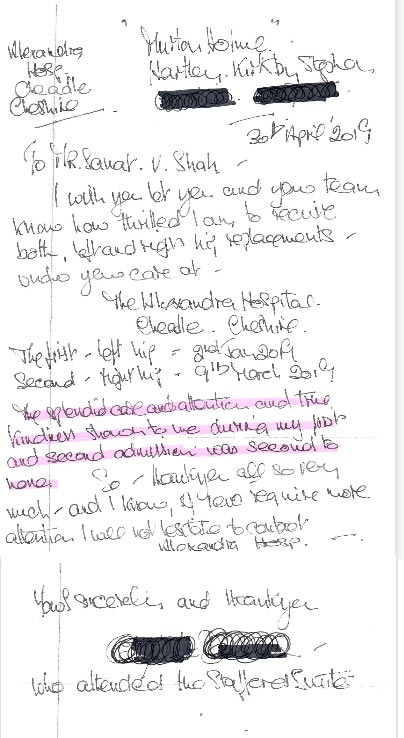 Alexandra
Hosp.
Cheadle
Cheshire
Hartley, Kirkby Stephen,
30th April 2019
To MR. Sanat. V. Shah -
I wish you let you and your team
know how thrilled I am, to receive
both, left and right hip replacements -
under your care at -
The Alexandra Hospital.
Cheadle. Cheshire.
The first - left hip = 2nd Jan 2019
Second - right hip = 9th March 2019
The splendid care and attention and true
kindness shown to me during my first
and second admission was second to
none.
So - thankyou all so very
much - and I know, if I ever require more
attention I will not hesitate to contact
Alexandra Hosp.
Yours sincerely, and thankyou
who attended at the Stafford Suite